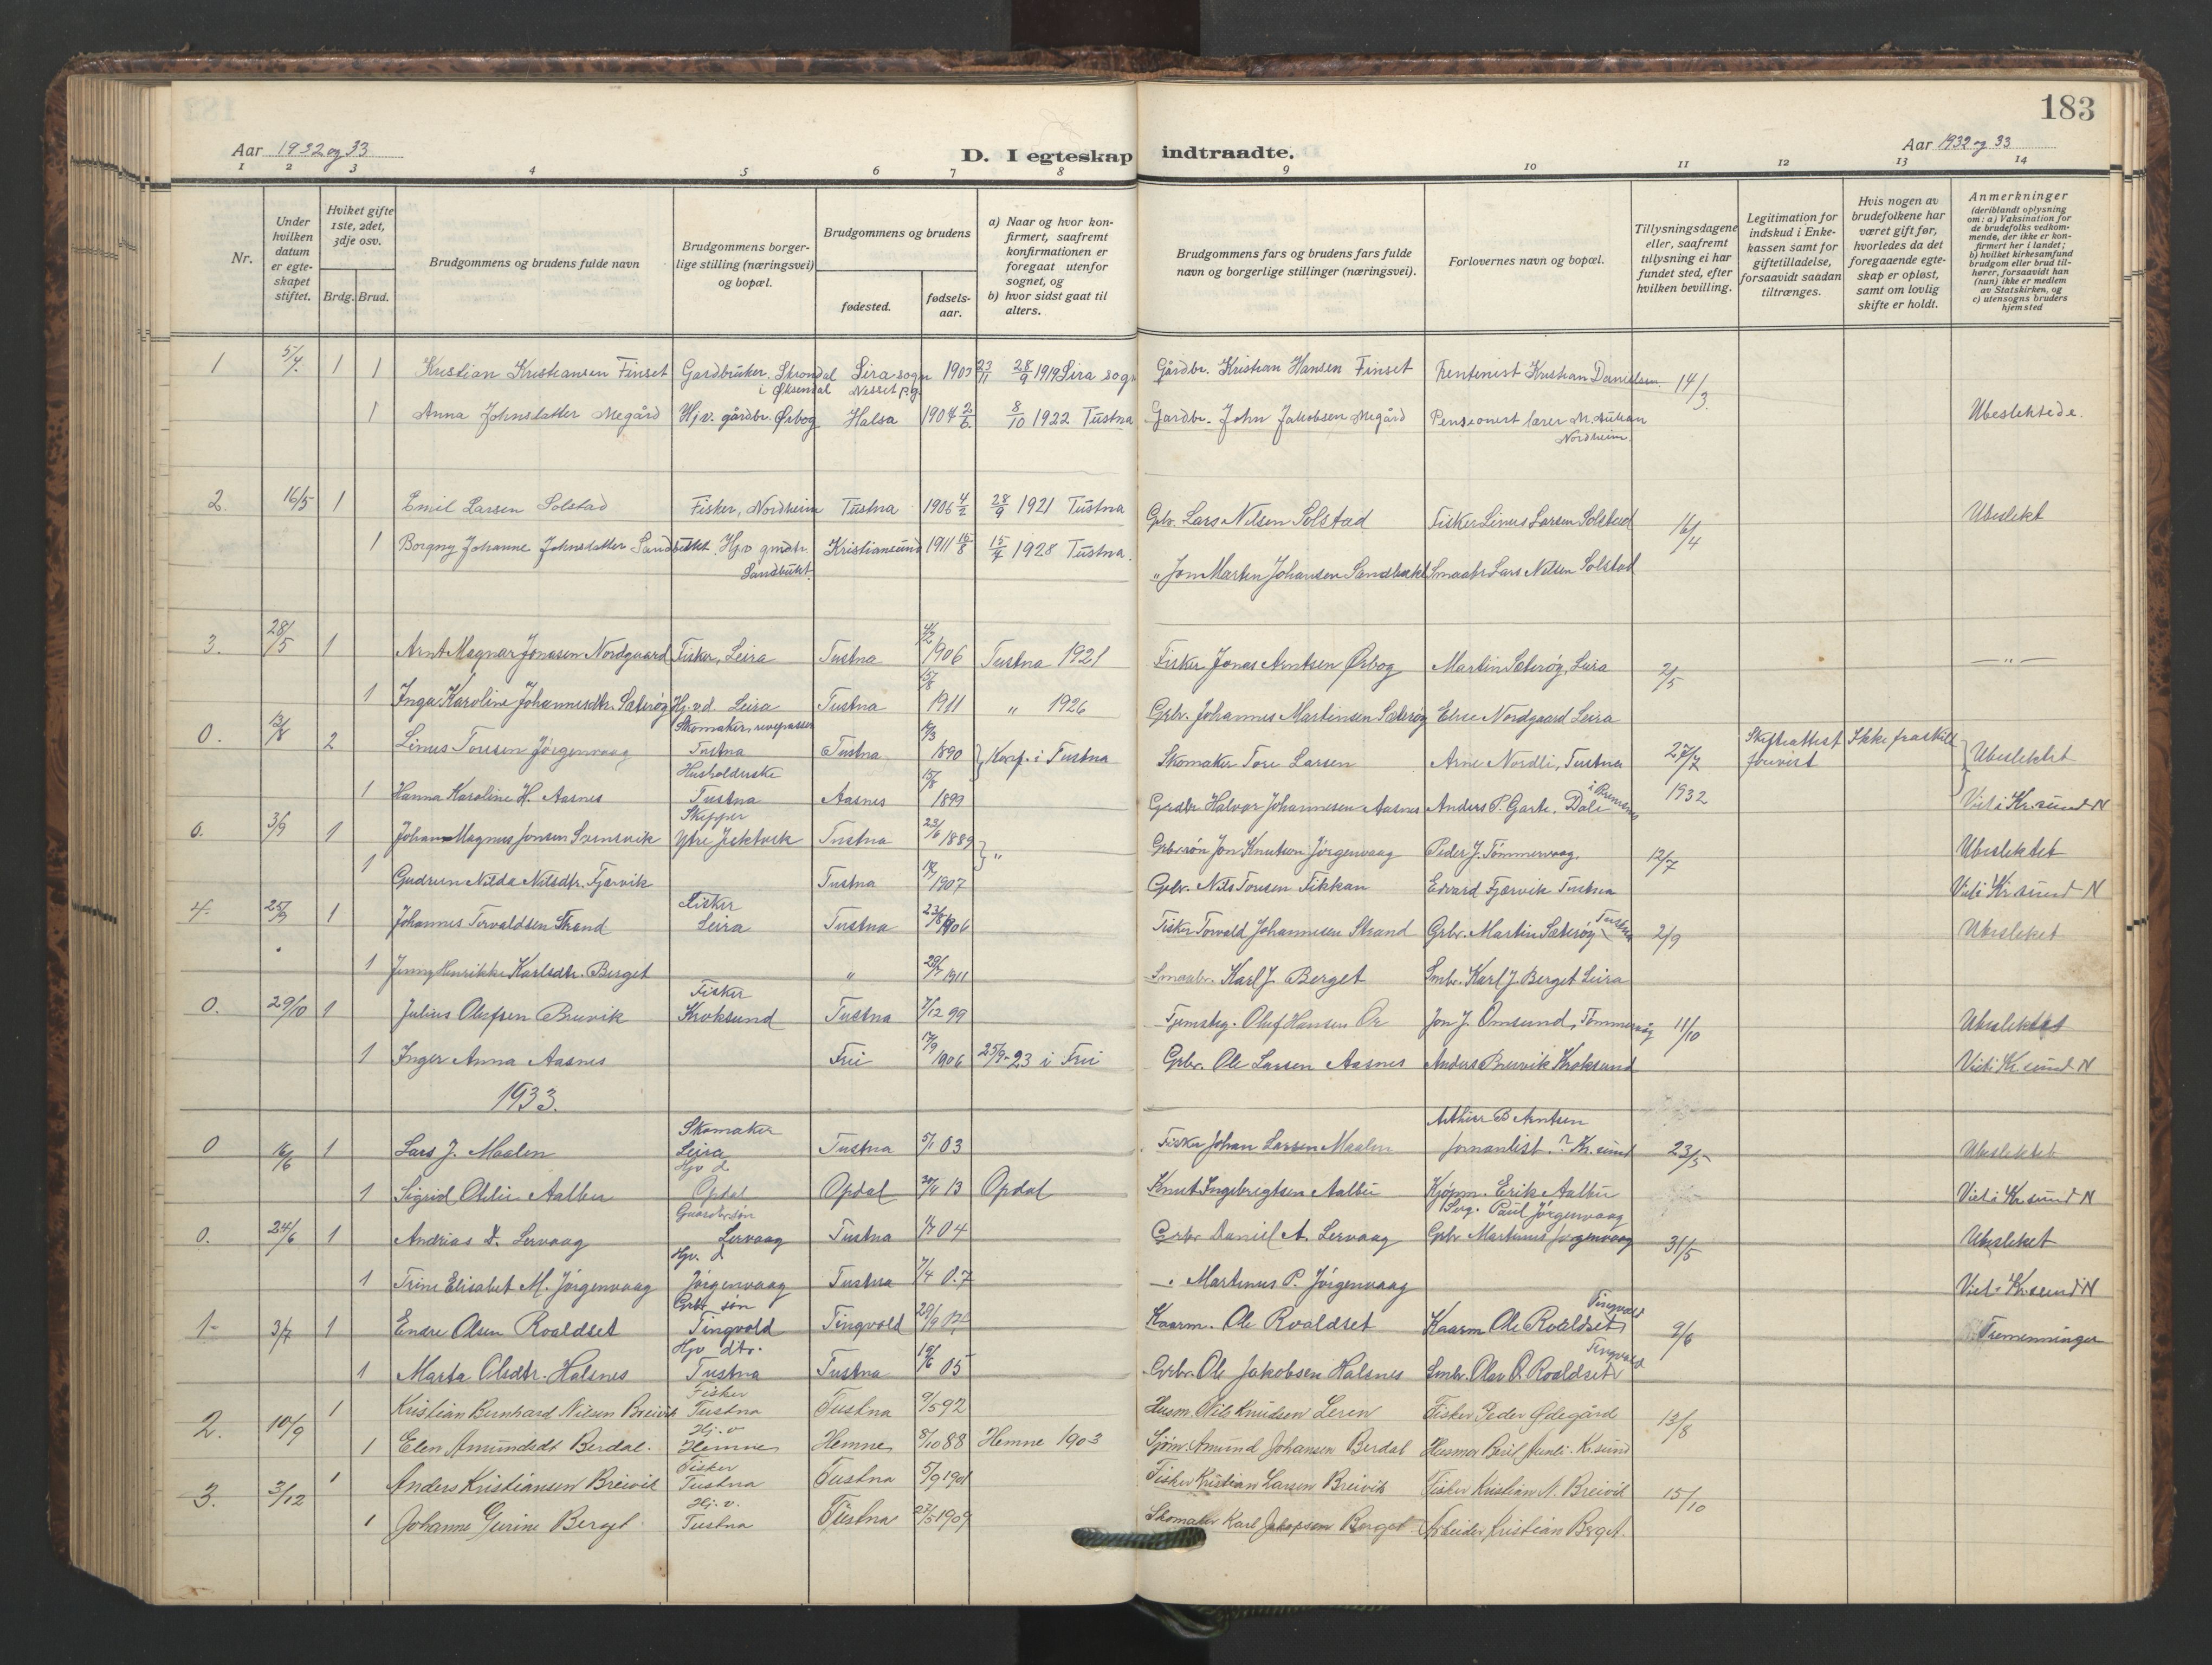 183
Aar 1932 og 33
D. I egteskap indtraadte.
Aar 1932 og 33
1 2 3 4 5 6 7 8 9 10 11 12 13 14
Nr.
Under hvilken datum er egteskapet stiftet.
Hviket gifte 1ste, 2det, 3dje osv.
Brdg. Brud.
Brudgommens og brudens fulde navn
Brudgommens borgerlige stilling (næringsvei) og bopæl.
Brudgommens og brudens
fødested.
fødselsaar.
a) Naar og hvor konfirmert, saafremt konfirmationen er foregaat utenfor sognet, og
b) hvor sidst gaat til alters.
Brudgommens fars og brudens fars fulde navn og borgerlige stillinger (næringsvei).
Forlovernes navn og bopæl.
Tillysningsdagene eller, saafremt tillysning ei har fundet sted, efter hvilken bevilling.
Legitimation for indskud i Enkekassen samt for giftetilladelse, forsaavidt saadan tiltrænges.
Hvis nogen av brudefolkene har været gift før, hvorledes da det foregaaende egteskap er opløst, samt om lovlig skifte er holdt.
Anmerkninger
(deriblandt oplysning om: a) Vaksination for de brudefolks vedkommende, der ikke er konfirmert her i landet; b) hvilket kirkesamfund brudgom eller brud tilhører, forsaavidt han (hun) ikke er medlem av Statskirken, og c) utensogns bruders hjemsted
1 5/4. 1 1 Kristian Kristiansen Finset Gardbruker. Strondal i Øksendal Sira sogn Nesset p.g. 1907 23/11 28/9 1919 Sira sogn Gårdbr. Kristian Hansen Finset Rentenist Kristian Danielsen 14/3.
1 Anna Johnsdatter Megård Hj.v. gårdbr. Ørbog Halsa 1904 2/6 8/10 1922 Tustna Gardbr. John Jakobsen Megård Pensionert lærer M. Nordheim. Ubeslektede.
2. 16/5 1 Emil Larsen Solstad Fisker, Nordheim Tustna 1906 4/2 28/9 1921 Tustna Gbr. Lars Nilsen Solstad Fisker Linus Larsen Solstad 16/4 Ubeslekt
1 Borgny Johanne Johnsdatter Sandbukt Hj.v Sandbukt. Kristiansund 1911 15/8 15/7 1928 Tustna. " Jon Martin Johansen Sandbukt Smaabr Lars Nilsen Solstad
3. 28/5 1 Arnt Magnar Jonasen Nordgaard Fisker, Leira Tustna 4/2 1906 Tustna 1921 Fisker Jonas Arntsen Ørbog Martin Sæterøy, Leira 2/5 — " —
1 Inga Karoline Johannesdtr. Sæterøy Hj. v.d. Leira Tustna 15/8 1911 " 1926 Grbr. Johannes Martinsen Sæterøy Elise Nordgaard Leira
0. 13/8 2 Linus Toresen Jörgenvaag Skomaker, revepasser Tustna Tustna 1890 Konf. i Tustna Skomaker Tore Larsen Arne Nordli, Tustna 27/7 1932 Skifteattest forevist Ikke fraskilt Ubeslektet
1 Hanna Karoline H. Aasnes Husholderske Tustna Aasnes 15/8 1899 Grdbr Halvor Johannesen Aasnes Anders P. Garte, Dale i Bremsnes Viet i Kr.sund N
0. 3/9 1 Johan Magnus Jonsen Svensvik Skipper Ytre Jektvik Tustna 23/6 1889 " Grbr.søn Jon Knutsen Jörgenvaag Peder J. Tömmervaag. 12/7 Ubeslektet
1 Gudrun Nilda Nilsdtr. Fjærvik Tustna 1907 Grbr. Nils Toresen Fikkan Edvard Fjærvik Tustna Viet i Kr.sund N
4. 25/9 1 Johannes Torvaldsen Strand Fisker Leira Tustna 23/8 1906 Fisker Torvald Johannesen Strand Grbr. Martin Sæterøy Tustna 2/9 Ubeslektet
1 Jenny Henrikke Karlsdtr. Berget " 29/7 1911 Smaabr. Karl J. Berget Smbr. Karl J. Berget Leira
0. 29/10 1 Julius Olufsen Bruvik Fisker Kroksund Tustna 7/12 99 Oluf Hansen Ör Jon J. Omsund, Tömmervåg 11/10 Ubeslektet
1 Inger Anna Aasnes Frei 17/9 1906 25/9-23 i Frei Grbr. Ole Larsen Aasnes Anders Bruvik Kroksund Viet i Kr.sund N
1933.
0 16/6 1 Lars J. Maalen Skomaker Leira Tustna 5/1 03 Fisker Johan Larsen Maalen Arthur B Arntsen Jornanlist? Kr.sund 23/5 Ubeslektet
1 Sigrid Otelie Aalbu Hjv d. Opdal Opdal 30/11 13 Opdal Knut Ingebrigtsen Aalbu Kjöpm. Erik Aalbu Viet i Kr.sund N
0. 24/6 1 Andreas D. Lervaag Lervaag Tustna 04 Grbr Daniel A. Lervaag Serg. Paul Jörgenvaag Grbr Martinus Jörgenvaag 31/5 Ubeslektet
1 Trine Elisabet M. Jörgenvaag Hjv. d Jörgenvaag Tustna 7/4 07 — " Martinus P. Jörgenvaag Viet i Kr.sund N
1- 3/7 1 Endre Olsen Roaldset Grbr søn Tingvold Tingvold 29/9 02 Kaarm. Ole Roaldset Kaarm Ole Roaldset, Tingvold 9/6 Tremenninger
1 Marta Olsdtr. Halsnes Hjv dtr. Tustna Tustna 19/6 05 Grbr. Ole Jakobsen Halsnes Smbr. Olav O. Roaldset Tingvold
2. 10/9 1 Kristian Bernhard Nilsen Breivik Fisker Tustna Tustna 9/5 92 Husm. Nils Knudsen Leren Fisker Peder Ødegård 13/8
1 Elen Amundsdt Berdal. Hj. v Hemne Hemne 8/10 88 Hemne 1903 Sjöm. Amund Johansen Berdal Husmor Kr.sund
3. 3/12 1 Anders Kristiansen Breivik Fisker Tustna Tustna 5/9 1901 Fisker Kristian Larsen Breivik Fisker Kristian A. Breivik 15/10
1 Johanne Gurine Berget. Hj. v. Tustna Tustna 23/5 1909 Skomaker Karl Jakopsen Berget Arbeider Kristian Berget.